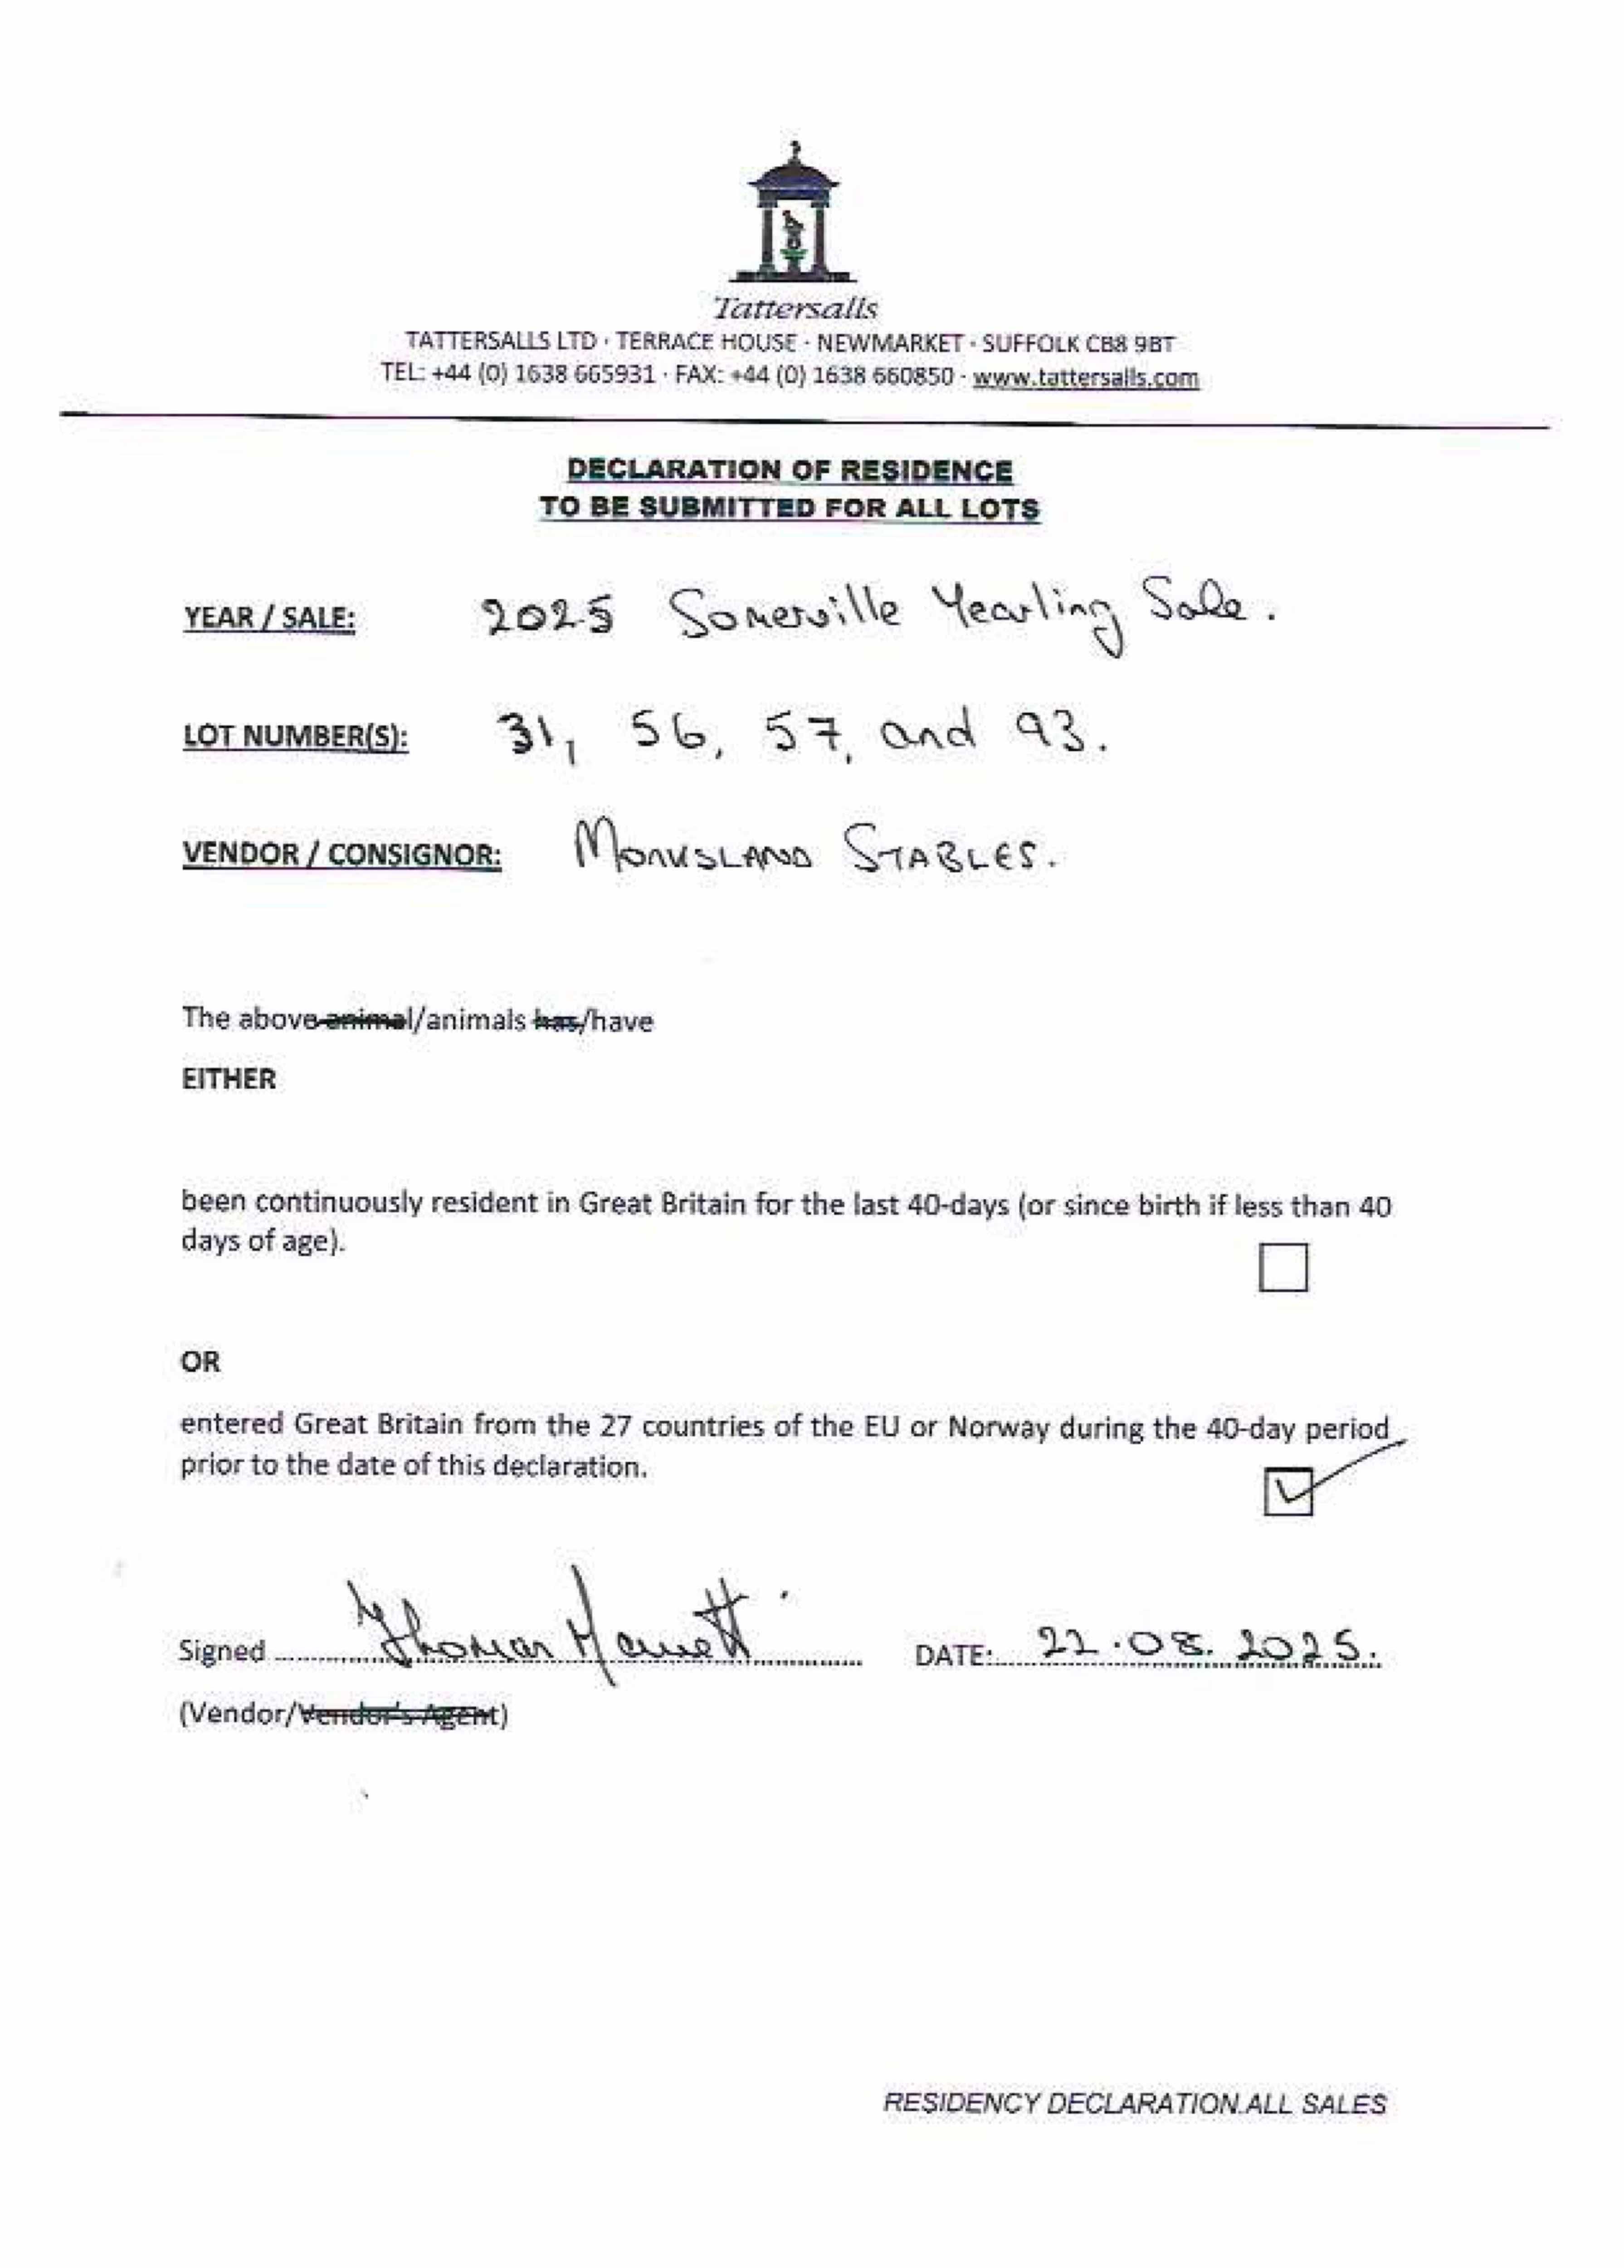 Tattersalls
TATTERSALLS LTD · TERRACE HOUSE · NEWMARKET · SUFFOLK CB8 9BT
TEL: +44 (0) 1638 665931 · FAX: +44 (0) 1638 660850 · www.tattersalls.com
DECLARATION OF RESIDENCE
TO BE SUBMITTED FOR ALL LOTS
YEAR / SALE: 2025 Somerville Yearling Sale.
LOT NUMBER(S): 31, 56, 57, and 93.
VENDOR / CONSIGNOR: MONKSLAND STABLES.
The above animal/animals has/have
EITHER
been continuously resident in Great Britain for the last 40-days (or since birth if less than 40
days of age).
OR
entered Great Britain from the 27 countries of the EU or Norway during the 40-day period
prior to the date of this declaration.
Signed Thomas DATE: 22.08.2025.
(Vendor/Vendor's Agent)
RESIDENCY DECLARATION.ALL SALES